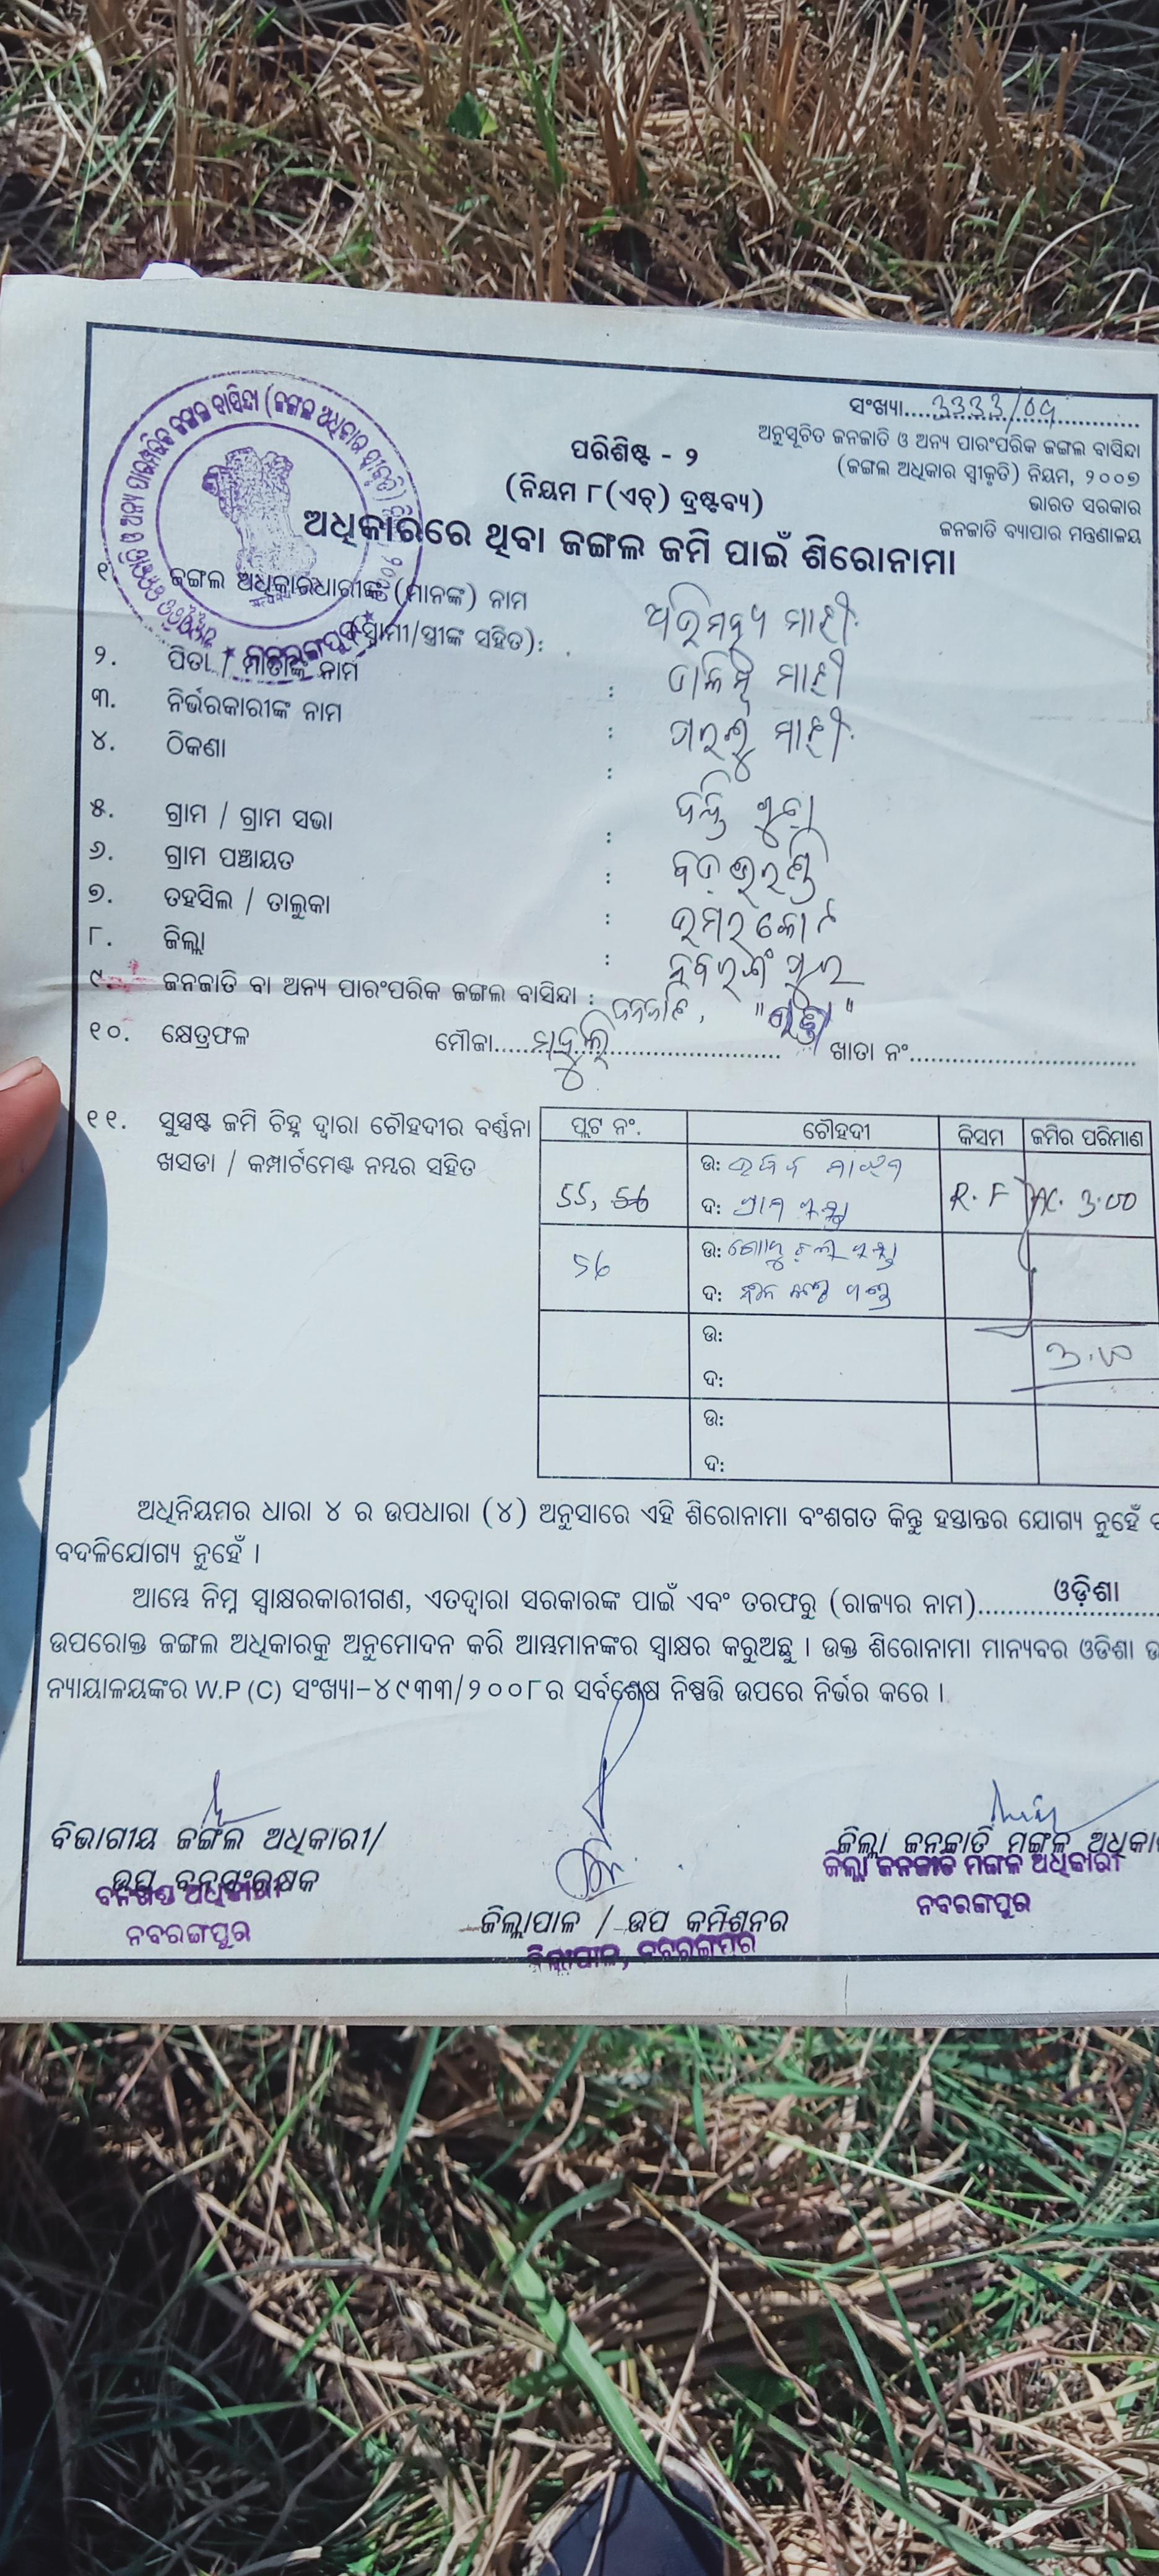 ସଂଖ୍ୟା....3333/09....
ଅନୁସୂଚିତ ଜନଜାତି ଓ ଅନ୍ୟ ପାରଂପରିକ ଜଙ୍ଗଲ ବାସିନ୍ଦା
(ଜଙ୍ଗଲ ଅଧିକାର ସ୍ଵୀକୃତି) ନିୟମ, ୨୦୦୭
ଭାରତ ସରକାର
ଜନଜାତି ବ୍ୟାପାର ମନ୍ତ୍ରଣାଳୟ
ପରିଶିଷ୍ଟ - ୨
(ନିୟମ ୮(ଏଚ୍) ଦ୍ରଷ୍ଟବ୍ୟ)
ଅଧିକାରରେ ଥିବା ଜଙ୍ଗଲ ଜମି ପାଇଁ ଶିରୋନାମା
୧. ଜଙ୍ଗଲ ଅଧିକାରଧାରୀଙ୍କ (ମାନଙ୍କ) ନାମ
(ସ୍ୱାମୀ/ସ୍ତ୍ରୀଙ୍କ ସହିତ): ଅଭିମନ୍ୟୁ ମାଝୀ
୨. ପିତା / ମାତାଙ୍କ ନାମ : ମାଝୀ
୩. ନିର୍ଭରକାରୀଙ୍କ ନାମ : ମାଝୀ
୪. ଠିକଣା :
୫. ଗ୍ରାମ / ଗ୍ରାମ ସଭା :
୬. ଗ୍ରାମ ପଞ୍ଚାୟତ :
୭. ତହସିଲ / ତାଲୁକା : ଉମରକୋଟ
୮. ଜିଲ୍ଲା : ନବରଙ୍ଗପୁର
୯. ଜନଜାତି ବା ଅନ୍ୟ ପାରଂପରିକ ଜଙ୍ଗଲ ବାସିନ୍ଦା : ଜନଜାତି,
୧୦. କ୍ଷେତ୍ରଫଳ ମୌଜା........ ଖାତା ନଂ........
୧୧. ସୁସ୍ପଷ୍ଟ ଜମି ଚିହ୍ନ ଦ୍ୱାରା ଚୌହଦୀର ବର୍ଣ୍ଣନା
ଖସଡା / କମ୍ପାର୍ଟମେଣ୍ଟ ନମ୍ବର ସହିତ
ପ୍ଲଟ ନଂ. ଚୌହଦୀ କିସମ ଜମିର ପରିମାଣ
ଉ:
55, 56 ଦ: R. F AC. 3.00
ଉ:
56 ଦ:
ଉ: 3.00
ଦ:
ଉ:
ଦ:
ଅଧିନିୟମର ଧାରା ୪ ର ଉପଧାରା (୪) ଅନୁସାରେ ଏହି ଶିରୋନାମା ବଂଶଗତ କିନ୍ତୁ ହସ୍ତାନ୍ତର ଯୋଗ୍ୟ ନୁହେଁ
ବଦଳିଯୋଗ୍ୟ ନୁହେଁ ।
ଆମ୍ଭେ ନିମ୍ନ ସ୍ୱାକ୍ଷରକାରୀଗଣ, ଏତଦ୍ୱାରା ସରକାରଙ୍କ ପାଇଁ ଏବଂ ତରଫରୁ (ରାଜ୍ୟର ନାମ)......ଓଡ଼ିଶା......
ଉପରୋକ୍ତ ଜଙ୍ଗଲ ଅଧିକାରକୁ ଅନୁମୋଦନ କରି ଆମ୍ଭମାନଙ୍କର ସ୍ୱାକ୍ଷର କରୁଅଛୁ । ଉକ୍ତ ଶିରୋନାମା ମାନ୍ୟବର ଓଡିଶା
ନ୍ୟାୟାଳୟଙ୍କର W.P (C) ସଂଖ୍ୟା-୪୯୩୩/୨୦୦୮ର ସର୍ବଶେଷ ନିଷ୍ପତ୍ତି ଉପରେ ନିର୍ଭର କରେ ।
ବିଭାଗୀୟ ଜଙ୍ଗଲ ଅଧିକାରୀ/
ଉପ ବନସଂରକ୍ଷକ
ବନଖଣ୍ଡ ଅଧିକାରୀ
ନବରଙ୍ଗପୁର
ଜିଲ୍ଲାପାଳ / ଉପ କମିଶନର
ଜିଲ୍ଲାପାଳ, ନବରଙ୍ଗପୁର
ଜିଲ୍ଲା ଜନଜାତି ମଙ୍ଗଳ
ଜିଲ୍ଲା ଜନଜାତି ମଙ୍ଗଳ ଅଧିକାରୀ
ନବରଙ୍ଗପୁର